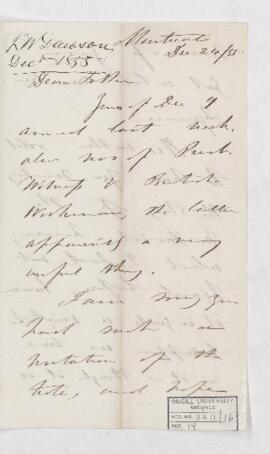 J W Dawson
Decr 1855
Montreal
Dec 24/55.
Dear Father
Yours of Dec 9
arrived last week.
also nos of Presb.
Witness & British
Workman, the latter
appears a very
useful thing.
I
had made
notation of the
note, and hope
McGILL UNIVERSITY
ARCHIVES
ACC. NO. 3211/16
REF. 14